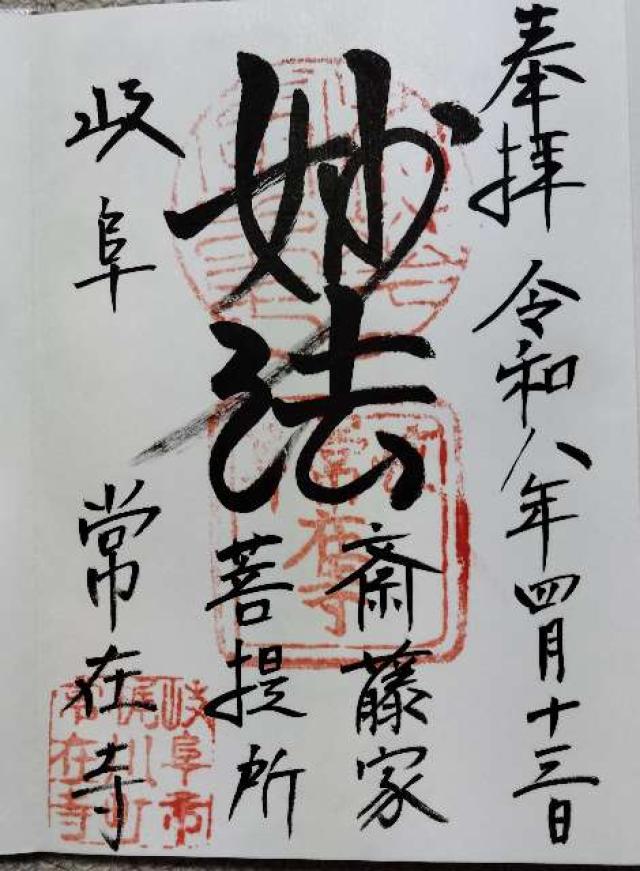 奉拝 令和八年四月十三日
妙法
斎藤家
菩提所
岐阜 常在寺
岐阜市
梶川町
常在寺